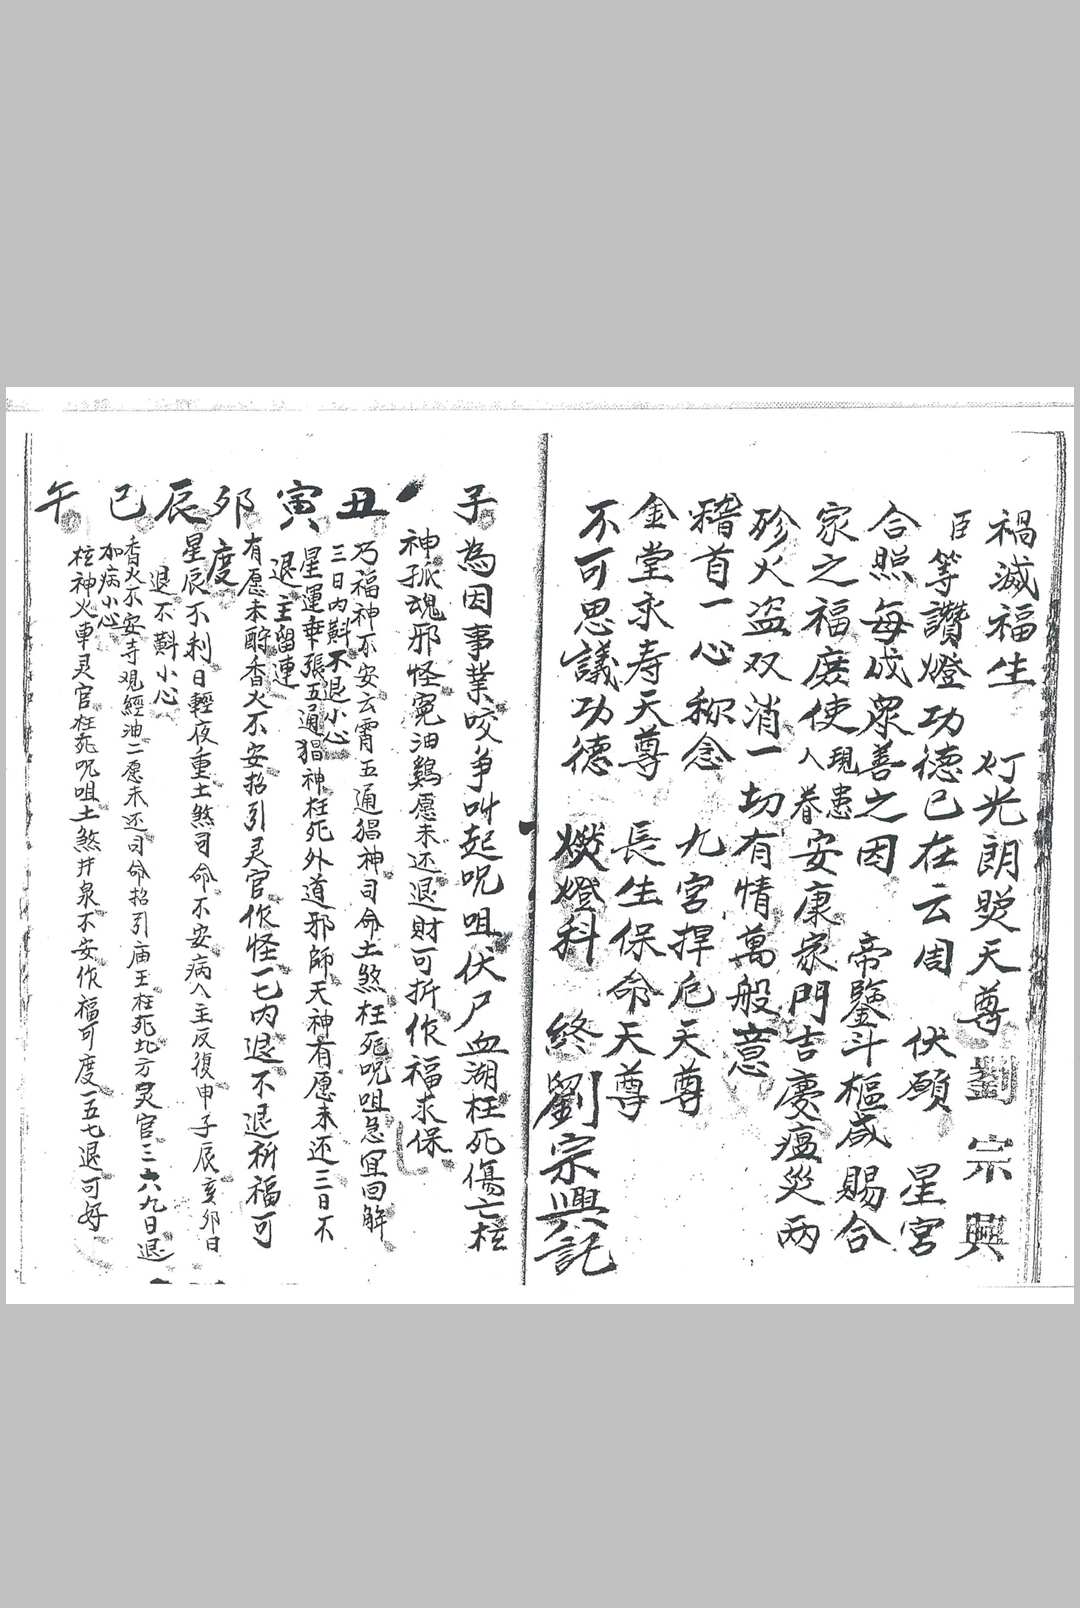 禍滅福生　灯光朗照天尊　劉宗興
臣等讚燈功德已在云周　伏願　星宮
合照每成眾善之因　帝鑒斗樞咸賜合
家之福庶使人現眷患安康家門吉慶瘟災兩
殄火盜双消一切有情萬般意
稽首一心称念　九宮捍厄天尊
金堂永寿天尊　長生保命天尊
不可思議功德　燃燈科　終　劉宗興記
子為因事業咬爭叫起呪咀伏尸血湖枉死傷亡枉
神孤魂邪怪冤油鷄愿未还退財可折作福求保
丑
乃福神不安云霄五通猖神司命土煞枉死呪咀急宜回觧
三日内斟不退小心
寅
星運幸張五通猖神枉死外道邪師天神有愿未还三日不
退主留連
卯
有愿未酧香火不安招引灵官作怪一七内退不退祈福可
度
辰
星辰不利日輕夜重土煞司命不安病人主反復申子辰亥卯日
退不斟小心
巳
香火不安寺观經油二愿未还司命招引庙王枉死北方灵官三六九日退
加病小心
午
枉神火車灵官枉死呪咀土煞井泉不安作福可度一五七退可好